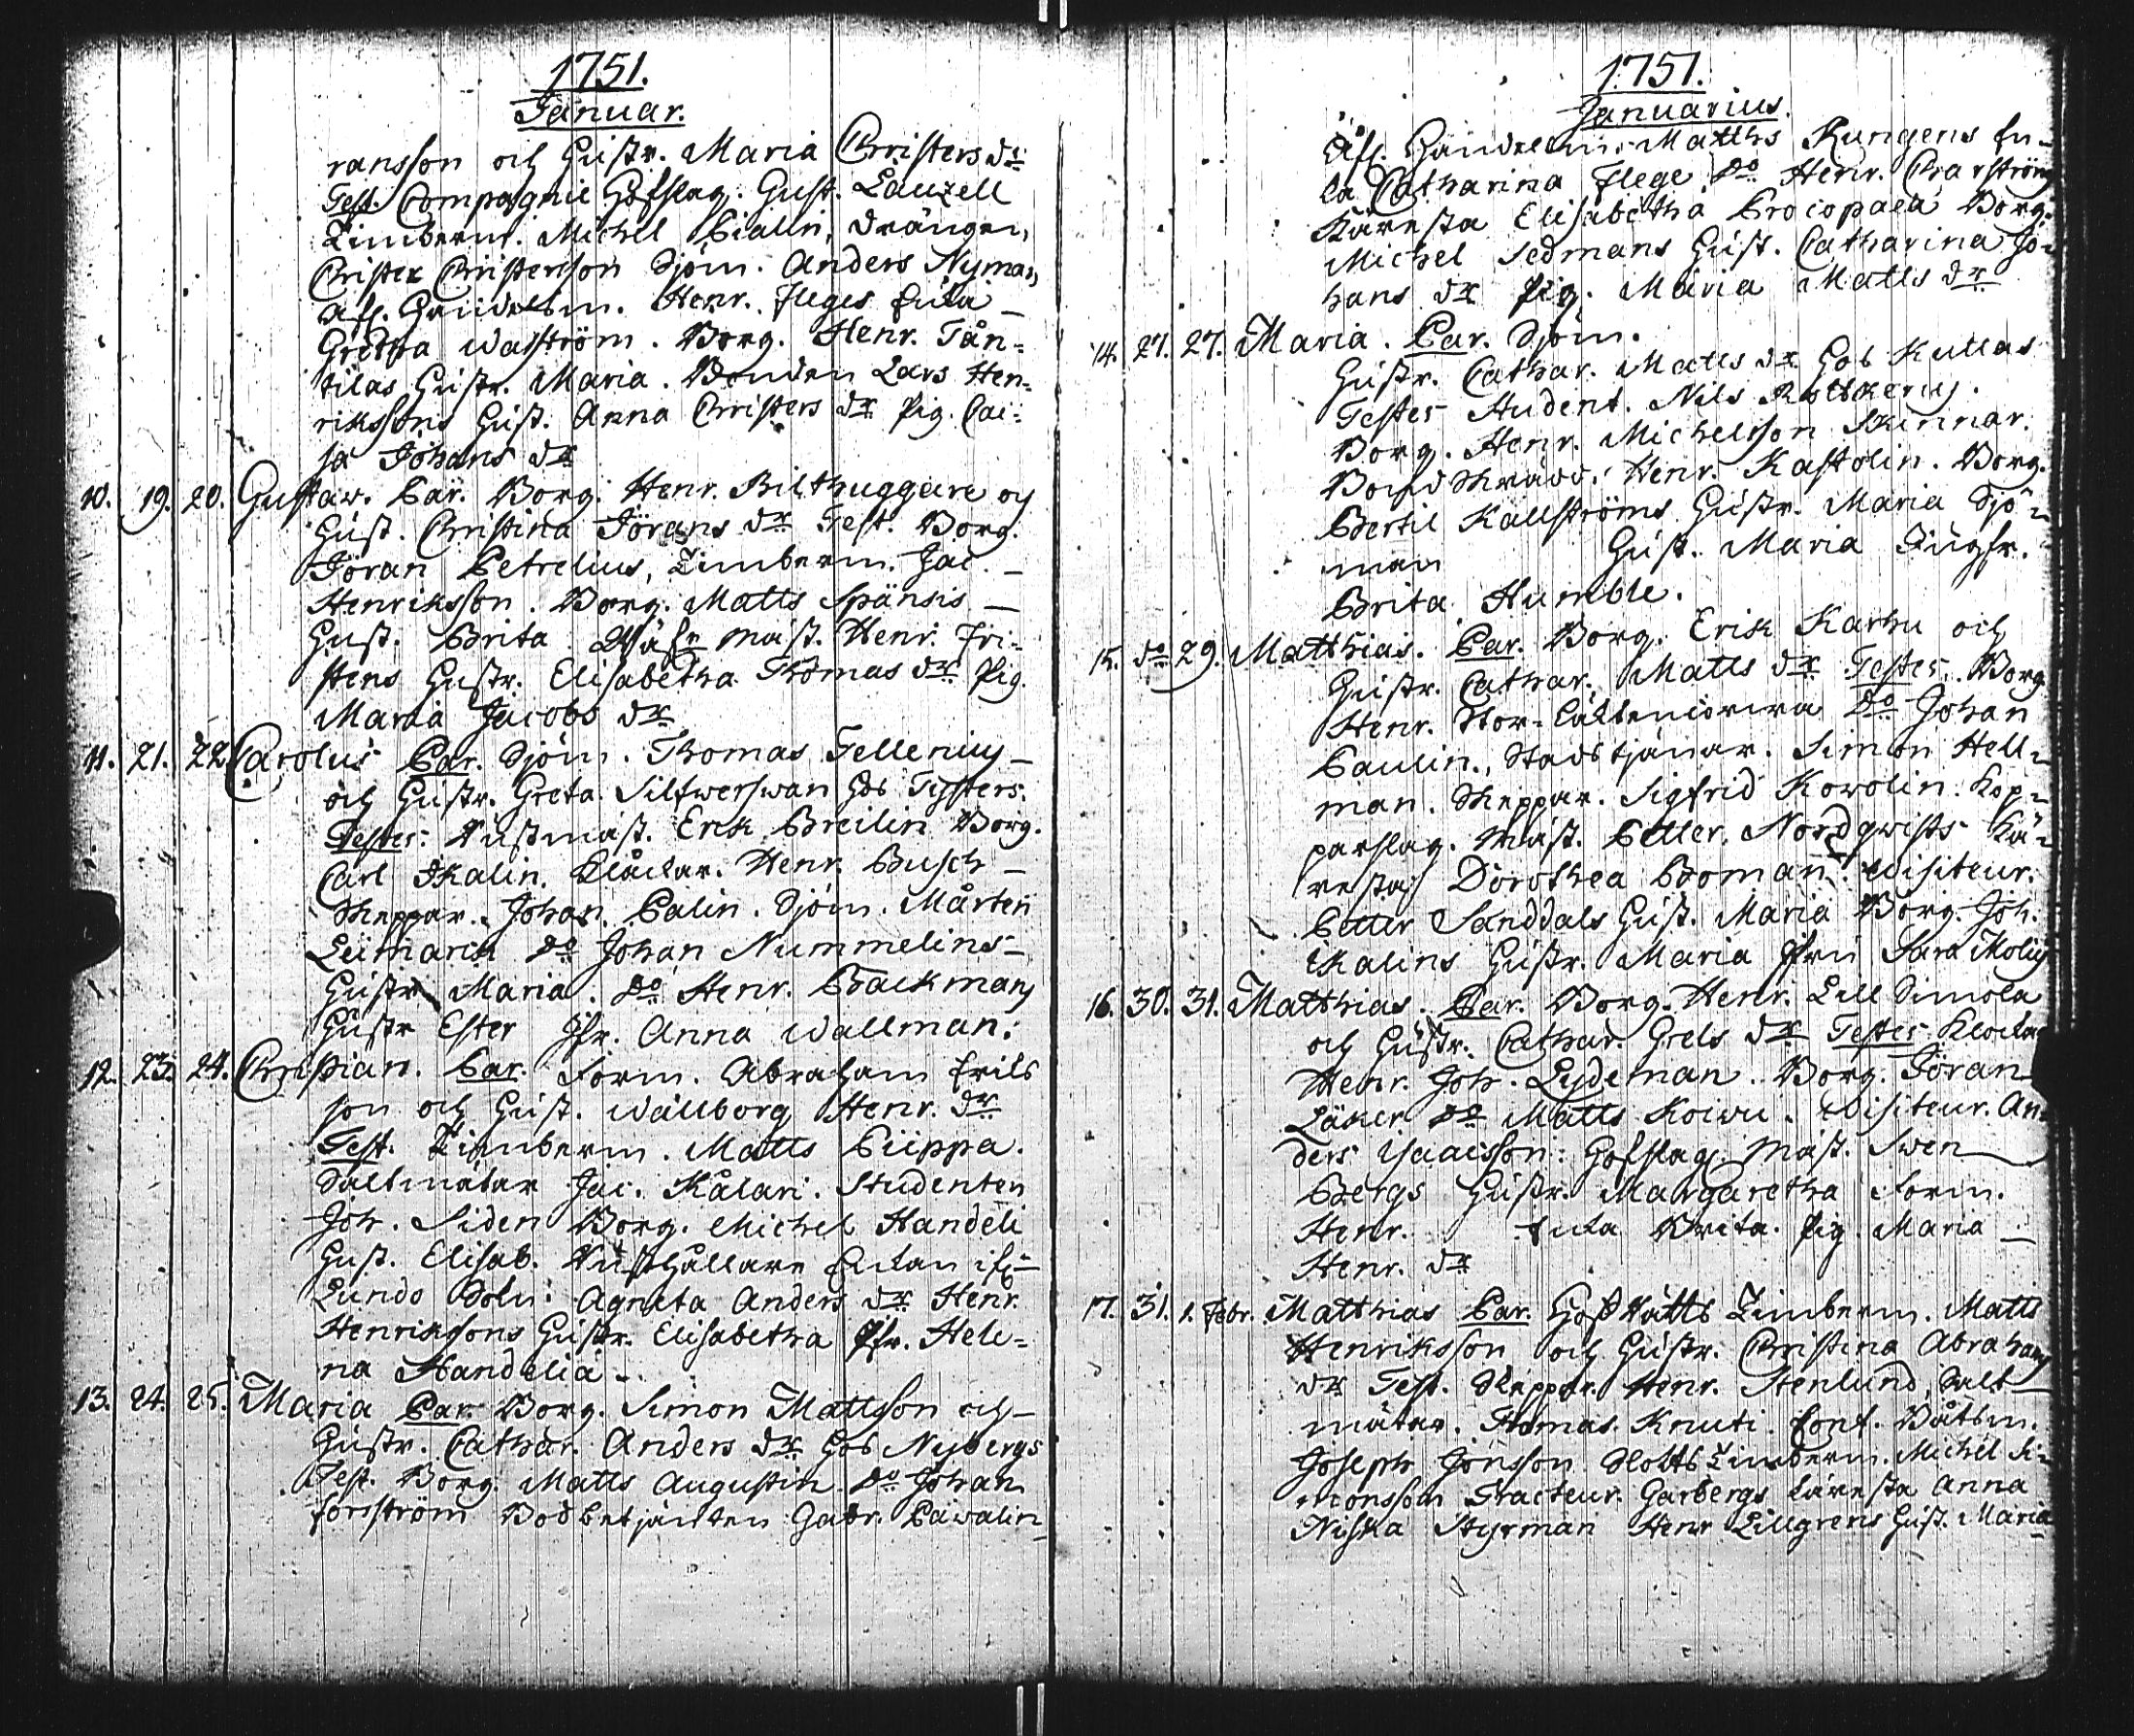 1751.
Januar.
ransson och Hustr. Maria Christers dr
Test. Compagnie Hofslag. Gust. Lauzell
Timberm. Michel Pialin, drängen,
Christer Christersson Sjöm. Anders Nyman
Afl. Handelsm. Henr. Fleges Enka
Gretha Wasström. Borg. Henr. Tån-
tilas Hustr. Maria. Bonden Lars Hen-
rikssons Hust. Anna Christers dr Pig. Cai-
sa Johans dr
10. 19. 20. Gustaw. Par. Borg. Henr. Bilthuggare och
Hust. Christina Jörans dr Test. Borg.
Jöran Petrelius, Timberm. Jac.
Henriksson. Borg. Matts Spånsis
Hust. Brita mäst. Henr. Fri-
stens Hustr. Elisabetha Thomas dr Pig.
Maria Jacobs dr
11. 21. 22 Carolus Par. Sjöm. Thomas Tellenius
och Hustr. Greta Silfwerswan hos Tysters.
Testes: Rustmäst. Erik Breilin Borg.
Carl Ikalin. Klåckar. Henr. Busch
Skeppar. Johan Palin. Sjöm. Mårten
Leimarck do Johan Nummelins
Hustr Maria. do Henr. Backmans
Hustr Ester Jfr. Anna Wallman.
12. 23. 24. Christian. Par. Form. Abraham Eriks
son och Hust. Wållborg Henr. dr
Test. Timberm. Matts Piippa.
Saltmätar Jac. Kålari. Studenten
Joh. Siden Borg. Michel Handeli
Hust. Elisab. Rusthållare Enkan if
Lundo Sokn: Agneta Anders dr Henr.
Henrikssons Hustr. Elisabetha Jfr. Hele-
na Handelia
13. 24. 25. Maria Par. Borg. Simon Mattsson och
Hustr. Cathar. Anders dr hos Nybergs
Test. Borg. Matts Augustin do Johan
Forsström Bodbetjänten Gabr. Pawalin
1751.
Januarius.
Afl. Handelsm. Matths Rungens En-
ka Catharina Flege do Henr. Charström
Käresta Elisabetha Procopaea Borg.
Michel Sedmans Hust. Catharina Jo-
hans dr Pig. Maria Matts dr
14. 27. 27. Maria. Par. Sjöm.
Hustr. Cathar. Matts dr hos Kullas
Testes Student. Nils
Borg. Henr. Michelsson Skinnar.
Henr. Kastolin. Borg.
Bertil Källströms Hustr. Maria Sjö-
man Hust. Maria Jungfr.
Brita Humble.
15. do 29. Matthias. Par. Borg. Erik Karhu och
Hustr. Cathar. Matts dr Testes. Borg.
Henr. Stor- do Johan
Paulin., Stadstjänar. Simon Hell-
man. Skeppar. Sigfrid Kowolin. Kop-
parslag. Mäst. Petter Nordqwists Kä-
resta Dorothea Boman. Wisiteur.
Petter Sanddals Hust. Maria Borg. Joh.
Ikalins Hustr. Maria Jfru Sara Moliis
16. 30. 31. Matthias. Par. Borg. Henr. Lill Simola
och Hustr. Cathar. Grels dr Testes Klockar
Henr. Joh. Lydeman. Borg. Jöran
Läker do Matts Koiwu. Wisiteur. An-
ders Isacsson: Hofslag. Mäst. Swen
Bergs Hustr. Margaretha Form.
Henr. Enka Brita. Pig Maria
Henr. dr
17. 31. 1. Febr. Matthias Par. Timberm. Matts
Henriksson och Hustr. Christina Abrahams
dr Test. Skeppar. Henr. Stenlund, Salt
mätar. Thomas Knuti. Båtsm.
Joseph Jönsson Slotts Timberm. Michel Si-
monsson Tracteur. Garbergs Käresta Anna
Niska Styrman Henr Lillgrens Hust. Maria